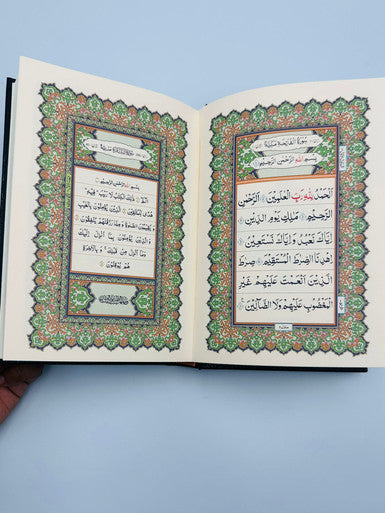 سُوْرَةُ الْفَاتِحَةِ مَكِّيَّةٌ
بِسْمِ اللهِ الرَّحْمٰنِ الرَّحِيْمِ
اَلْحَمْدُ لِلّٰهِ رَبِّ الْعٰلَمِيْنَ الرَّحْمٰنِ
الرَّحِيْمِ مٰلِكِ يَوْمِ الدِّيْنِ
اِيَّاكَ نَعْبُدُ وَاِيَّاكَ نَسْتَعِيْنُ
اِهْدِنَا الصِّرَاطَ الْمُسْتَقِيْمَ صِرَاطَ
الَّذِيْنَ اَنْعَمْتَ عَلَيْهِمْ غَيْرِ
الْمَغْضُوْبِ عَلَيْهِمْ وَلَا الضَّآلِّيْنَ
بِسْمِ اللهِ الرَّحْمٰنِ الرَّحِيْمِ
الٓمّٓ ذٰلِكَ الْكِتٰبُ لَا رَيْبَ فِيْهِ
هُدًى لِّلْمُتَّقِيْنَ الَّذِيْنَ يُؤْمِنُوْنَ بِالْغَيْبِ
وَيُقِيْمُوْنَ الصَّلٰوةَ وَمِمَّا رَزَقْنٰهُمْ يُنْفِقُوْنَ
وَالَّذِيْنَ يُؤْمِنُوْنَ بِمَآ اُنْزِلَ اِلَيْكَ
وَمَآ اُنْزِلَ مِنْ قَبْلِكَ وَبِالْاٰخِرَةِ
هُمْ يُوْقِنُوْنَ